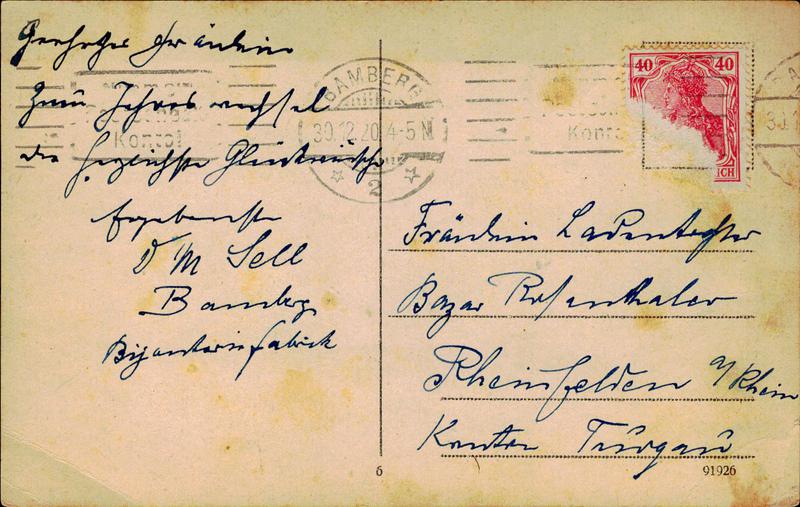 Geehrtes Fräulein
Zum Jahreswechsel
die herzlichste Glückwünsche
Ergebenste
D M Sell
Bamberg
Bijouteriefabrick
Postscheck
Konto!
BAMBERG
30.12.20 4-5 N
2
Konto
40 40
ICH
Fräulein Ladentochter
Bazar Rosenthaler
Rheinfelden a/Rhein
Kanton Turgau
6
91926